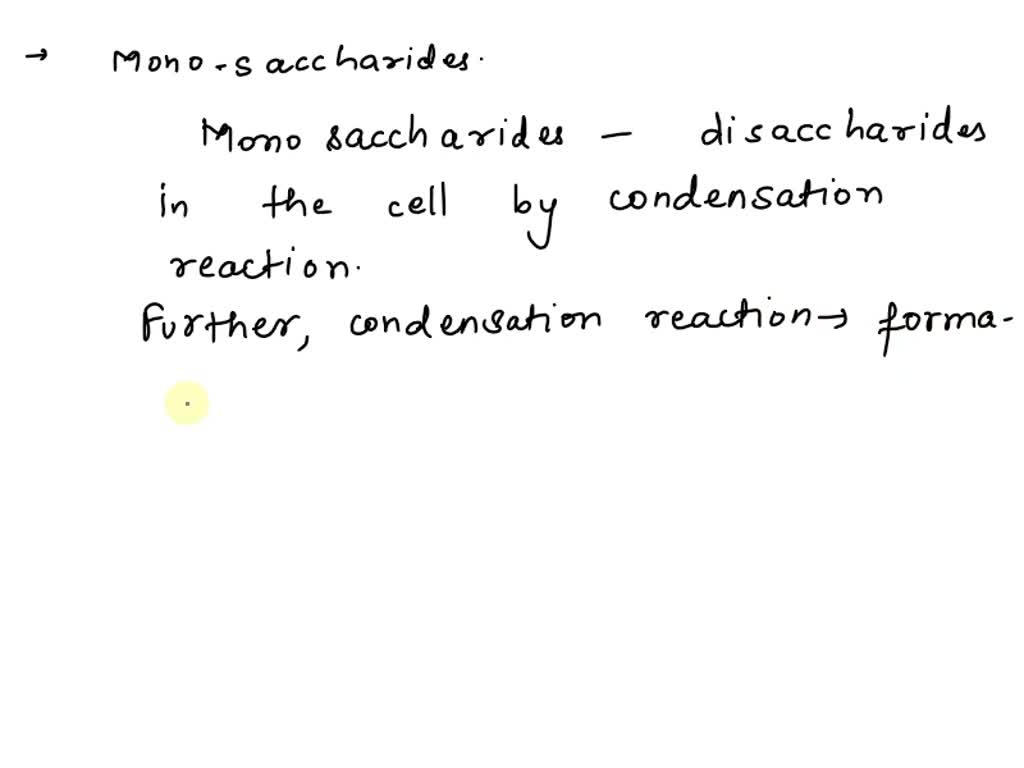 → Mono-saccharides.
Mono saccharides – disaccharides
in the cell by condensation
reaction.
Further, condensation reaction → forma-